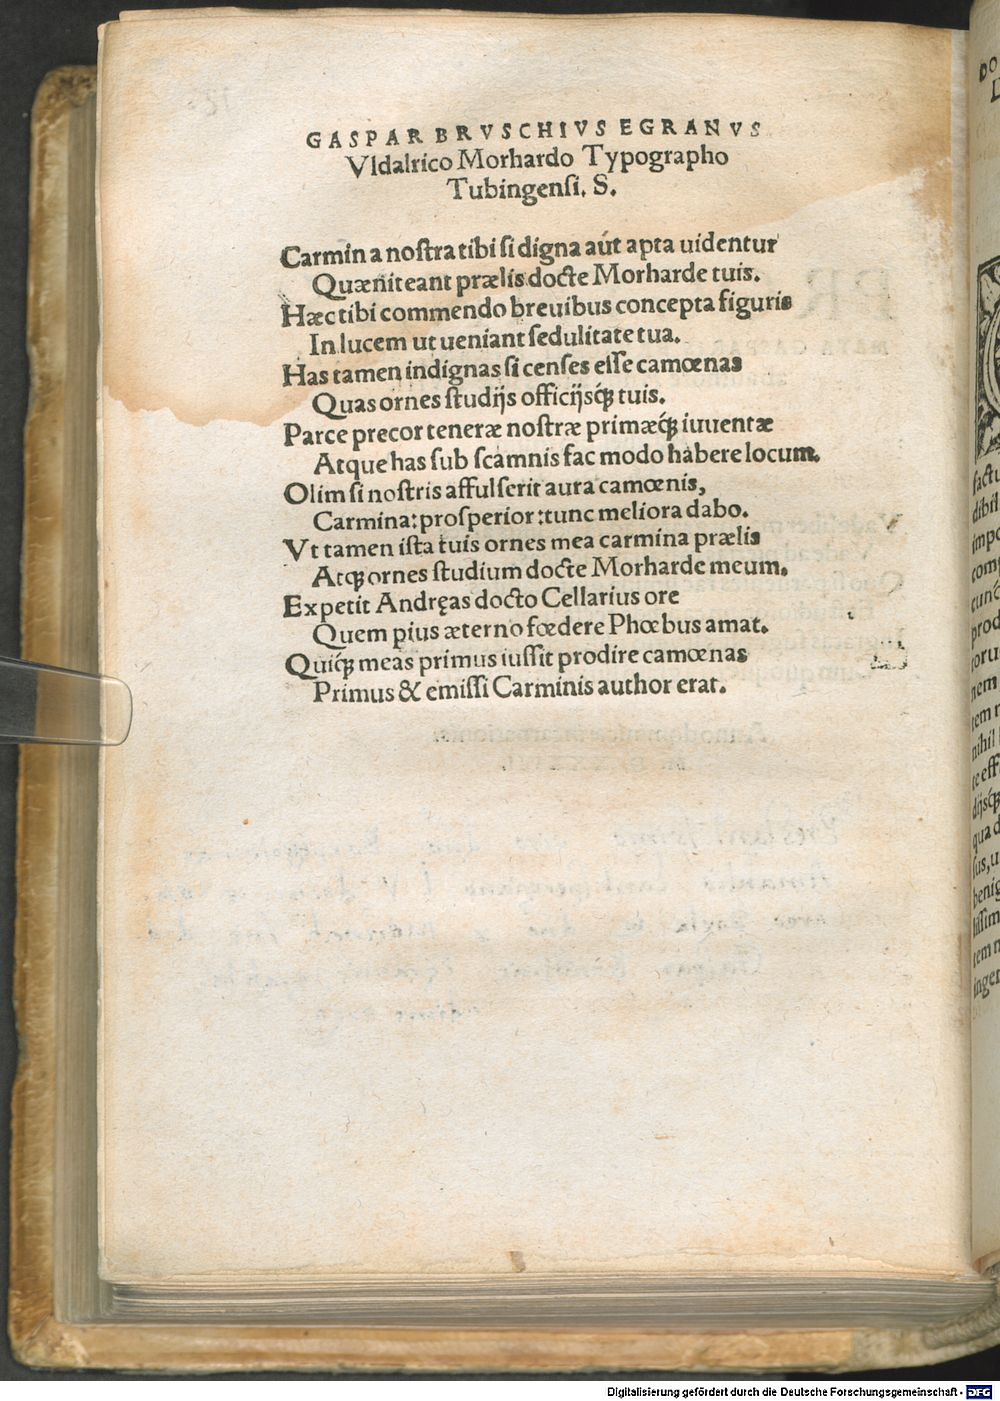 GASPAR BRVSCHIVS EGRANVS
Vldalrico Morhardo Typographo
Tubingensi. S.
Carmina nostra tibi si digna aút apta uidentur
Quæ niteant prælis docte Morharde tuis.
Hæc tibi commendo breuibus concepta figuris
In lucem ut ueniant sedulitate tua.
Has tamen indignas si censes esse camœnas
Quas ornes studijs officijsq́ꝫ tuis.
Parce precor teneræ nostræ primæq́ꝫ iuuentæ
Atque has sub scamnis fac modo habere locum.
Olim si nostris affulserit aura camœnis,
Carmina: prosperior: tunc meliora dabo.
Vt tamen ista tuis ornes mea carmina prælis
Atqꝫ ornes studium docte Morharde meum.
Expetit Andręas docto Cellarius ore
Quem pius æterno fœdere Phœbus amat.
Quiq́ꝫ meas primus iussit prodire camœnas
Primus & emissi Carminis author erat.
DO
factu
dibil
impo
com
cunc
prod
nem
tem
nihil
te eff
dijsq́ꝫ
qua
sus, u
benig
lissim
tem
inger
Digitalisierung gefördert durch die Deutsche Forschungsgemeinschaft - DFG